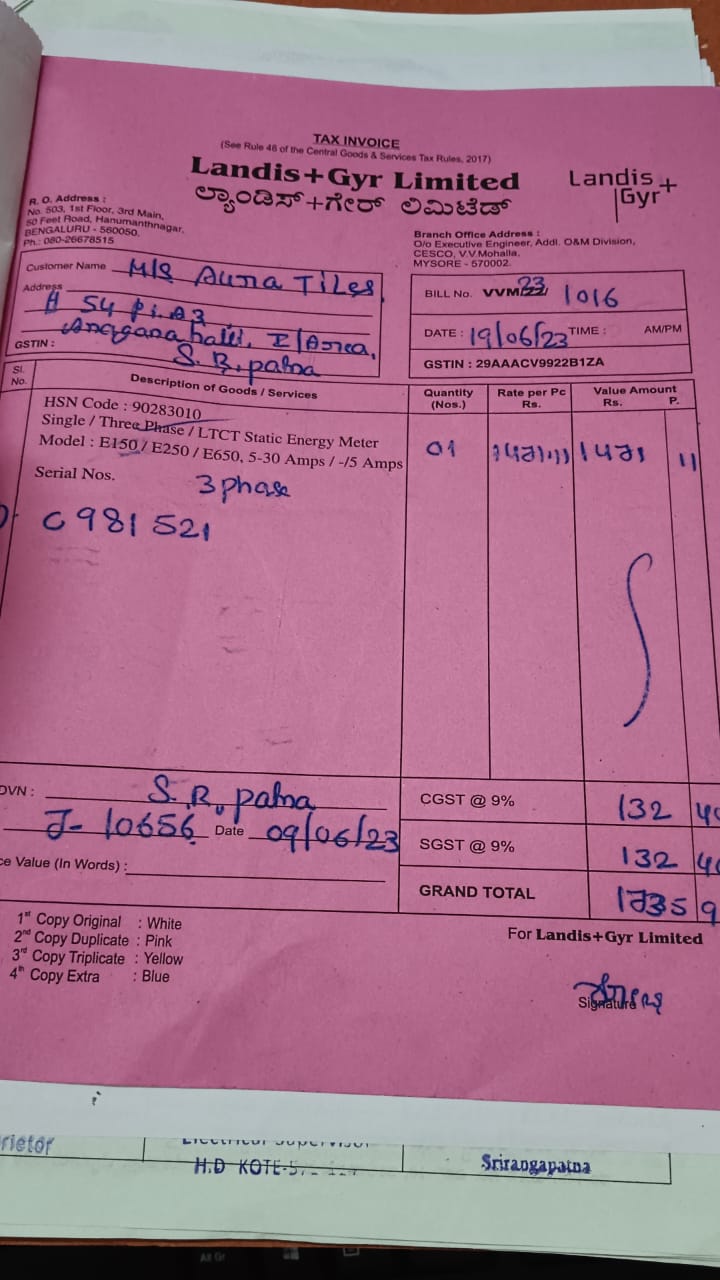 TAX INVOICE
(See Rule 46 of the Central Goods & Services Tax Rules, 2017)
Landis+Gyr Limited
ಲ್ಯಾಂಡಿಸ್+ಗೇರ್ ಲಿಮಿಟೆಡ್
Landis+
Gyr
R. O. Address :
No. 503, 1st Floor, 3rd Main,
50 Feet Road, Hanumanthnagar,
BENGALURU - 560050.
Ph.: 080-26678515
Branch Office Address :
O/o Executive Engineer, Addl. O&M Division,
CESCO, V.V.Mohalla,
MYSORE - 570002.
Customer Name M/S Auna Tiles
Address
# 54
I/Area,
GSTIN : S. R. patna
BILL No. VVM/22/ 23 1016
DATE : 19/06/23 TIME : AM/PM
GSTIN : 29AAACV9922B1ZA
Sl. No. Description of Goods / Services Quantity (Nos.) Rate per Pc Rs. Value Amount Rs. P.
HSN Code : 90283010
Single / Three Phase / LTCT Static Energy Meter
Model : E150 / E250 / E650, 5-30 Amps / -/5 Amps 01 11
Serial Nos.
3 phase
C981521
DVN : S. R. patna
J- 10656 Date 09/06/23
ce Value (In Words) :
CGST @ 9% 132
SGST @ 9% 132
GRAND TOTAL
1st Copy Original : White
2nd Copy Duplicate : Pink
3rd Copy Triplicate : Yellow
4th Copy Extra : Blue
For Landis+Gyr Limited
Signature
rietor
Electrical Supervisor
H.D KOTE-
Srirangapatna